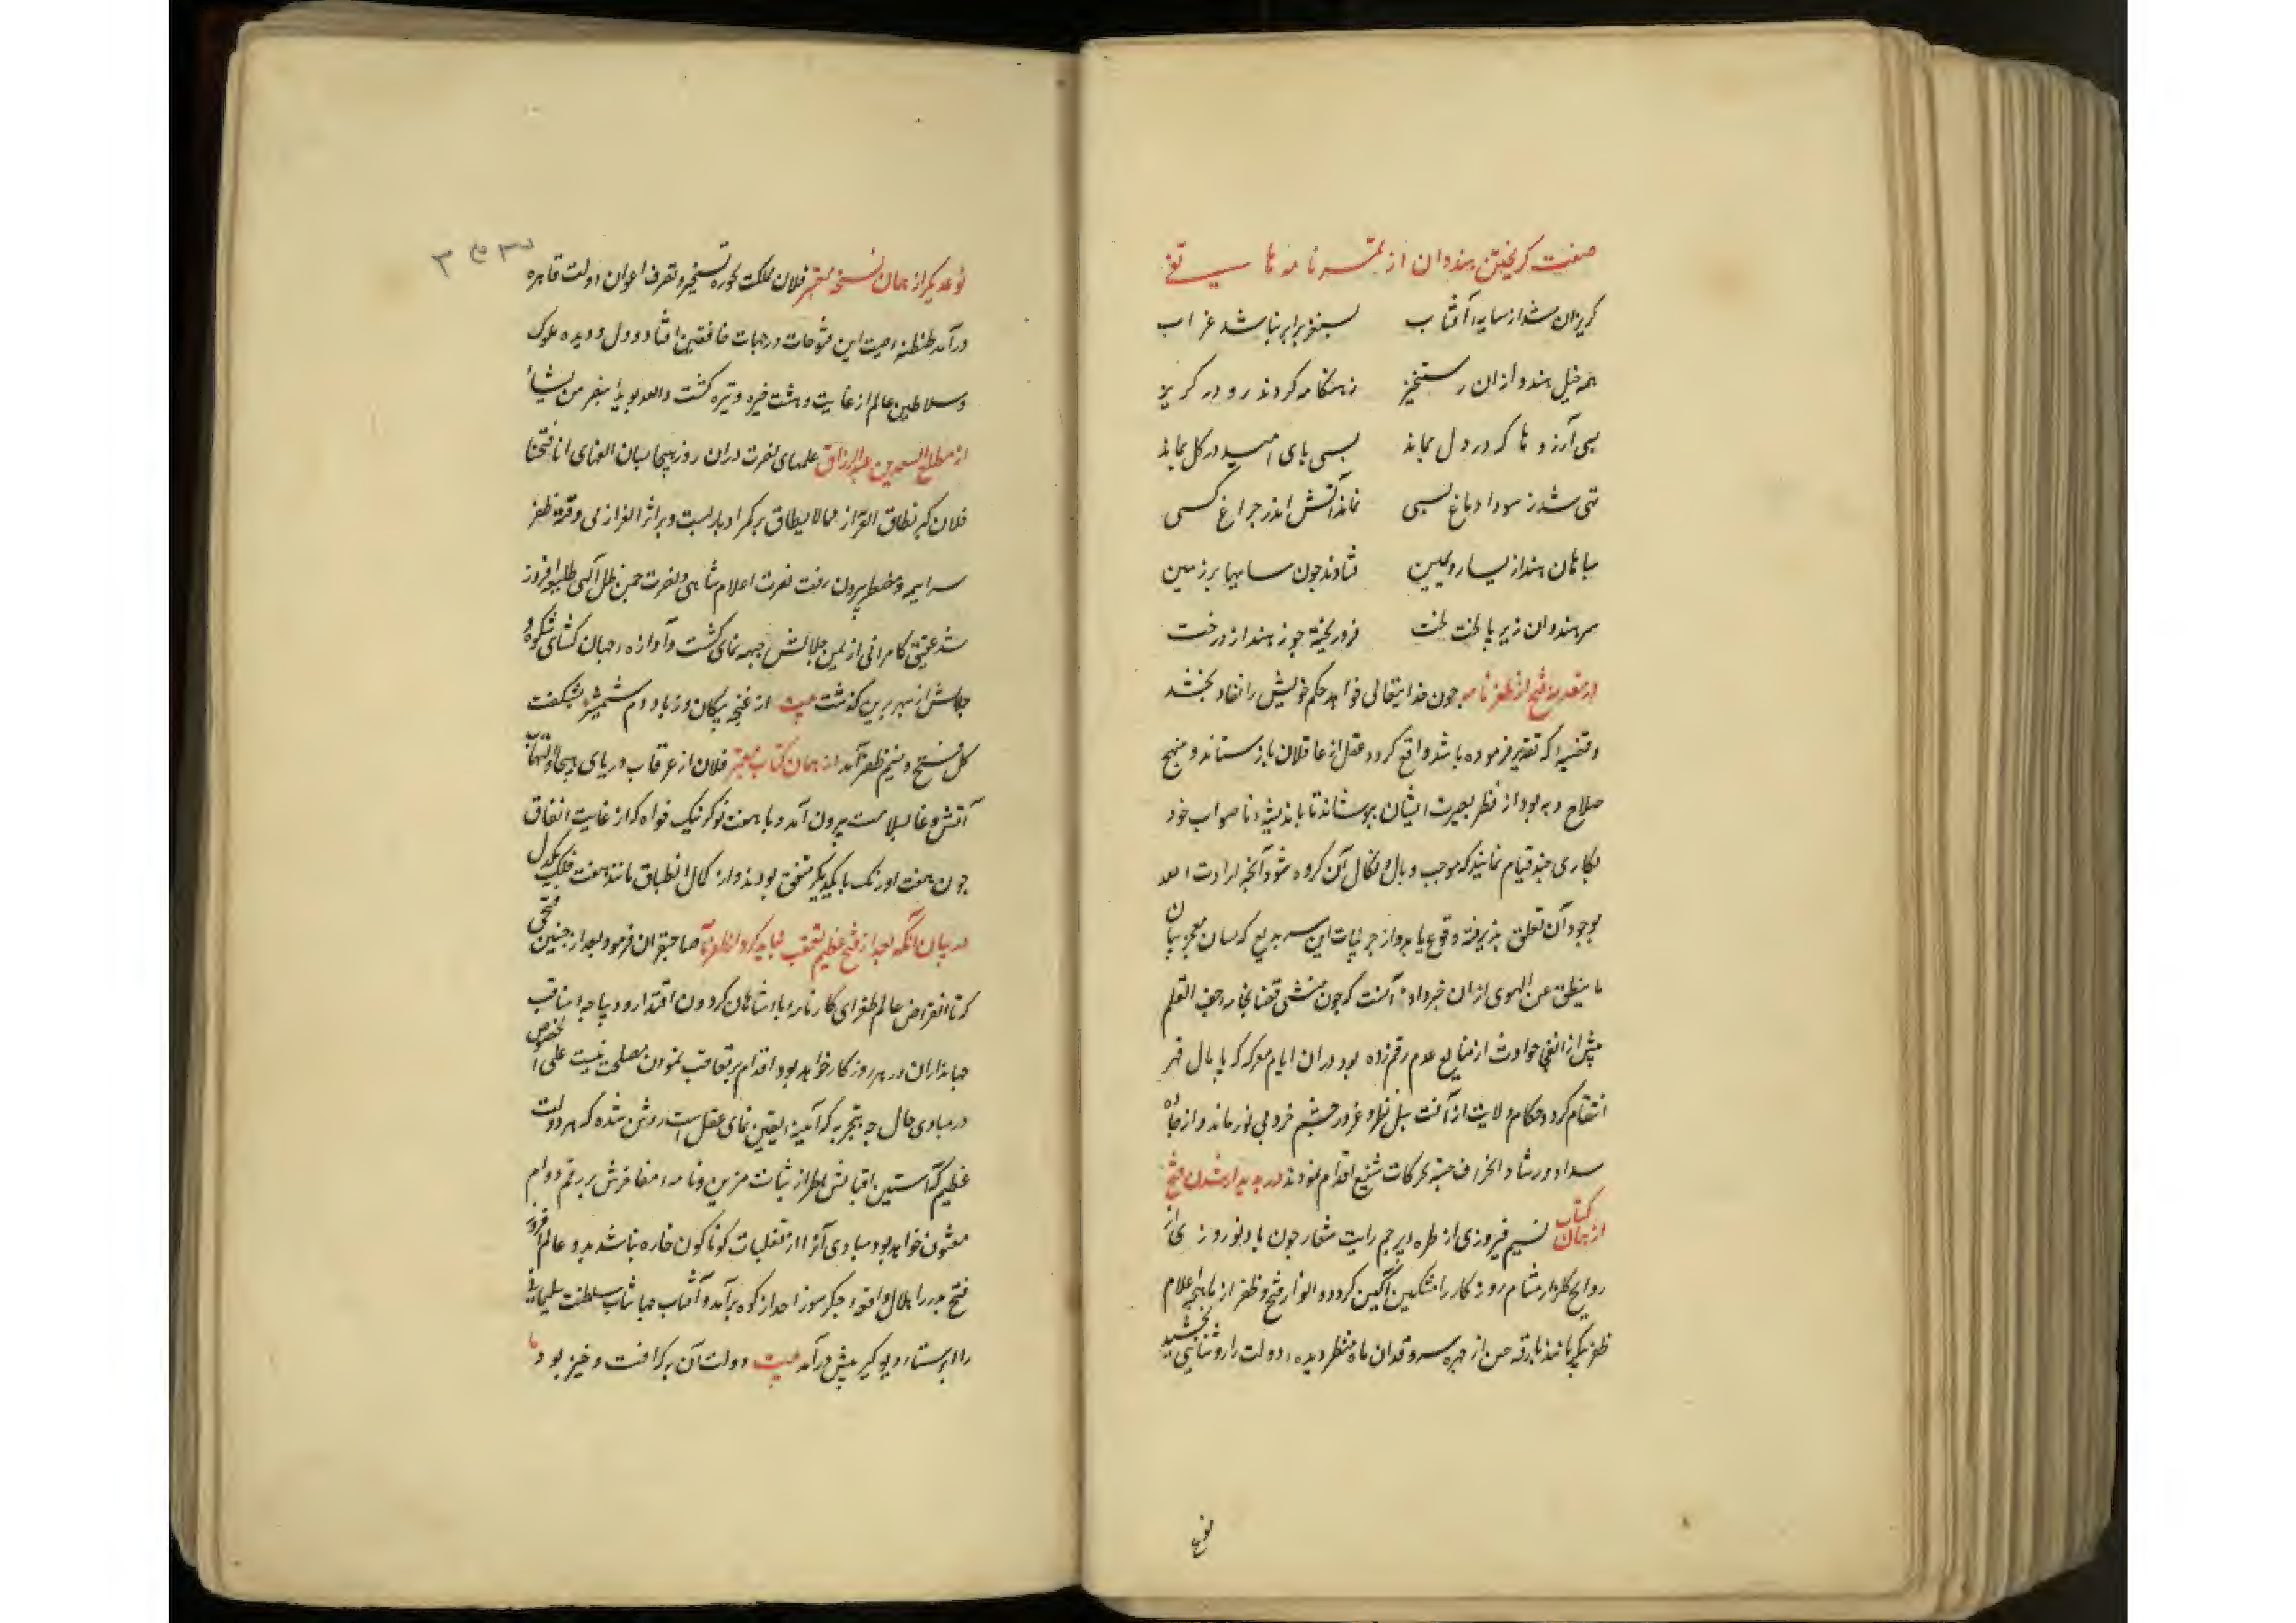 صفت کریختن هندوان از تمرنامه هاتفی
کریزان شد از سایه آفتاب بسنقر برابر نباشد غراب
همه خیل هندو ازان رستخیز ز هنکامه کردند رو در کریز
بسی آرزوها که در دل بماند بسی بای امید در کل بماند
تهی شد ز سودا دماغ بسی نماند آتش اندر چراغ کسی
سباهان هند از یسار و یمین فتادند جون سایها بر زمین
سر هندوان زیر با لخت لخت فرو ریخته جوز هند از درخت
در مقدمه فتح از ظفرنامه جون خدایتعالی خواهد حکم خویش را نفاذ بخشد
و قضیه که تقدیر فرموده باشد واقع کردد عقل از عاقلان باز ستاند و منهج
صلاح و بهبود از نظر بصیرت ایشان ببوشاند تا باندیشه ناصواب خود
بکاری جند قیام نمایند که موجب وبال و نکال آن کروه شود آنچه ارادت الله
بوجود آن تعلق بذیرفته وقوع یابد و از جزئیات این سر بدیع که لسان معجز بیان
ما ینطق عن الهوی ازان خبر داده آنست که جون منشی قضا بخامه جف القلم
بیش از حوادث از عدم رقم زده بود دران ایام معرکه که بایمال قهر
انتقام کردد حکام ولایت از آفت بطر و غرور چشم خرد بی نور ماند و از جاده
سداد و رشاد انحراف جسته بحرکات شنیع اقدام نمودند در بدید امدن فتح
از همان کتاب نسیم فیروزی از طره برجم رایت شعار جون باد نوروزی از
روایح کلزار مشام روزکار را مشکین آکین کرد و انوار فتح و ظفر از ماهچه اعلام
ظفربیکر مانند بارقه حسن از چهره سرو قدان ماه منظر دیده دولت را روشنایی بخشید
نوع
نوع دیکر از همان نسخه معتبر فلان مملکت بحوزه تسخیر و تصرف اعوان دولت قاهره
درآمد طنطنه صیت این فتوحات در جهات خافقین افتاد و دل و دیده ملوک
و سلاطین عالم از غایت دهشت خیره و تیره کشت والله یؤید بنصره من یشاء
از مطلع السعدین عبدالرزاق علمهای نصرت دران روز هیجا بسان الفهای انا فتحنا
فلان کبر نطاق الفرار مما لا یطاق بر کمر ادبار بست و بر اثر الفرار می و قره ظفر
سراسیمه و مضطر بیرون رفت نصرت اعلام شاهی و نصرت ظل آلهی افروز
شد عقیق کامرانی از یمن جلالش جبهه نمای کشت و آوازه جهان کشای شکوه و
جلالش از سبهر برین کذشت بیت از غنچه بیکان و ز باد دم شمشیر بشکفت
کل فتح و نسیم ظفر آمد از همان کتاب معتبر فلان از غرقاب دریای هیجا و التهاب
آتش وغا بسلامت بیرون آمد و با هفت نوکر نیک خواه که از غایت اتفاق
جون هفت اورنک با یکدیکر متفق بودند و از کمال انطباق مانند هفت فلک یکدل
در بیان آنکه بعد از فتح عظیم تعقب نباید کرد از ظفرنامه صاحبقران فرمود بعد از چنین فتحی
که تا انقراض عالم طغرای کارنامه بادشاهان کردون اقتدار و دیباجه مناقب
جهانداران در هر روزکار خواهد بود اقدام بر تعاقب نمودن مصلحت نیست علی الخصوص
در مبادی حال چه بتجربه که آیینه یقین نمای عقل است روشن شده که هر دولت
عظیم که آستین اقبالش بطراز ثبات مزین و نامه مفاخرش برقم دوام
معنون خواهد بود مبادی آنرا از تقلبات کوناکون چاره نباشد بدر عالم افروز
فتح بدر را هلال واقعه جکرسوز احد از کوه برآمد و آفتاب جهانتاب سلطنت سلیمانی
را ابر ستاره دیو کیر بیش درآمد بیت دولت آن به که افت و خیز بود ما